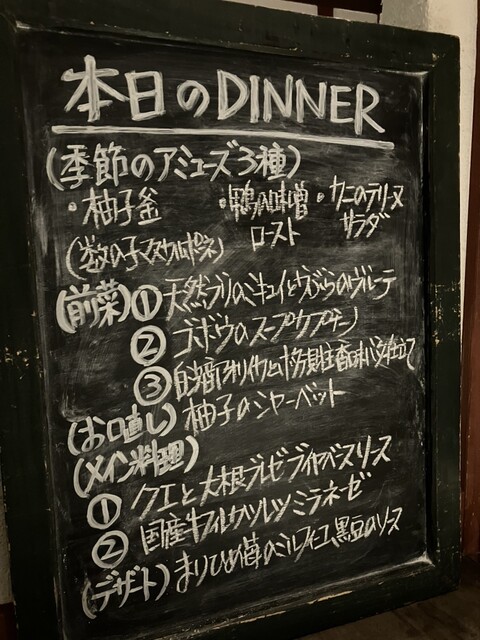 本日のDINNER
(季節のアミューズ3種)
・柚子釜 ・鴨の味噌 ・カニのテリーヌ
ロースト サラダ
(数の子マスカルポネ)
(前菜)① 天然ブリのミキュイとカブラのヴルーテ
② ゴボウのスープカプチーノ
③ 自家製
(お口直し) 柚子のシャーベット
(メイン料理)
① クエと大根ブレゼ ブイヤベースソース
② 国産牛フィレカツレツ ミラネーゼ
(デザート) まりひめ苺のミルフィーユ 黒豆のソース